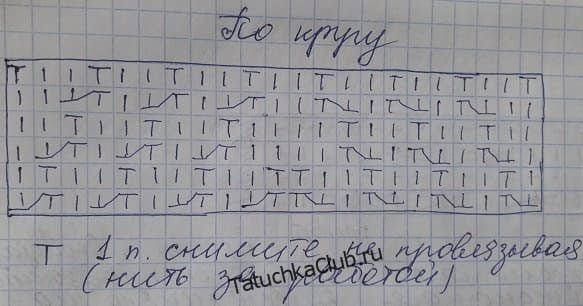 По кругу
T 1 п. снимите не провязывая
(нить за работой)
Tatuchkaclub.ru